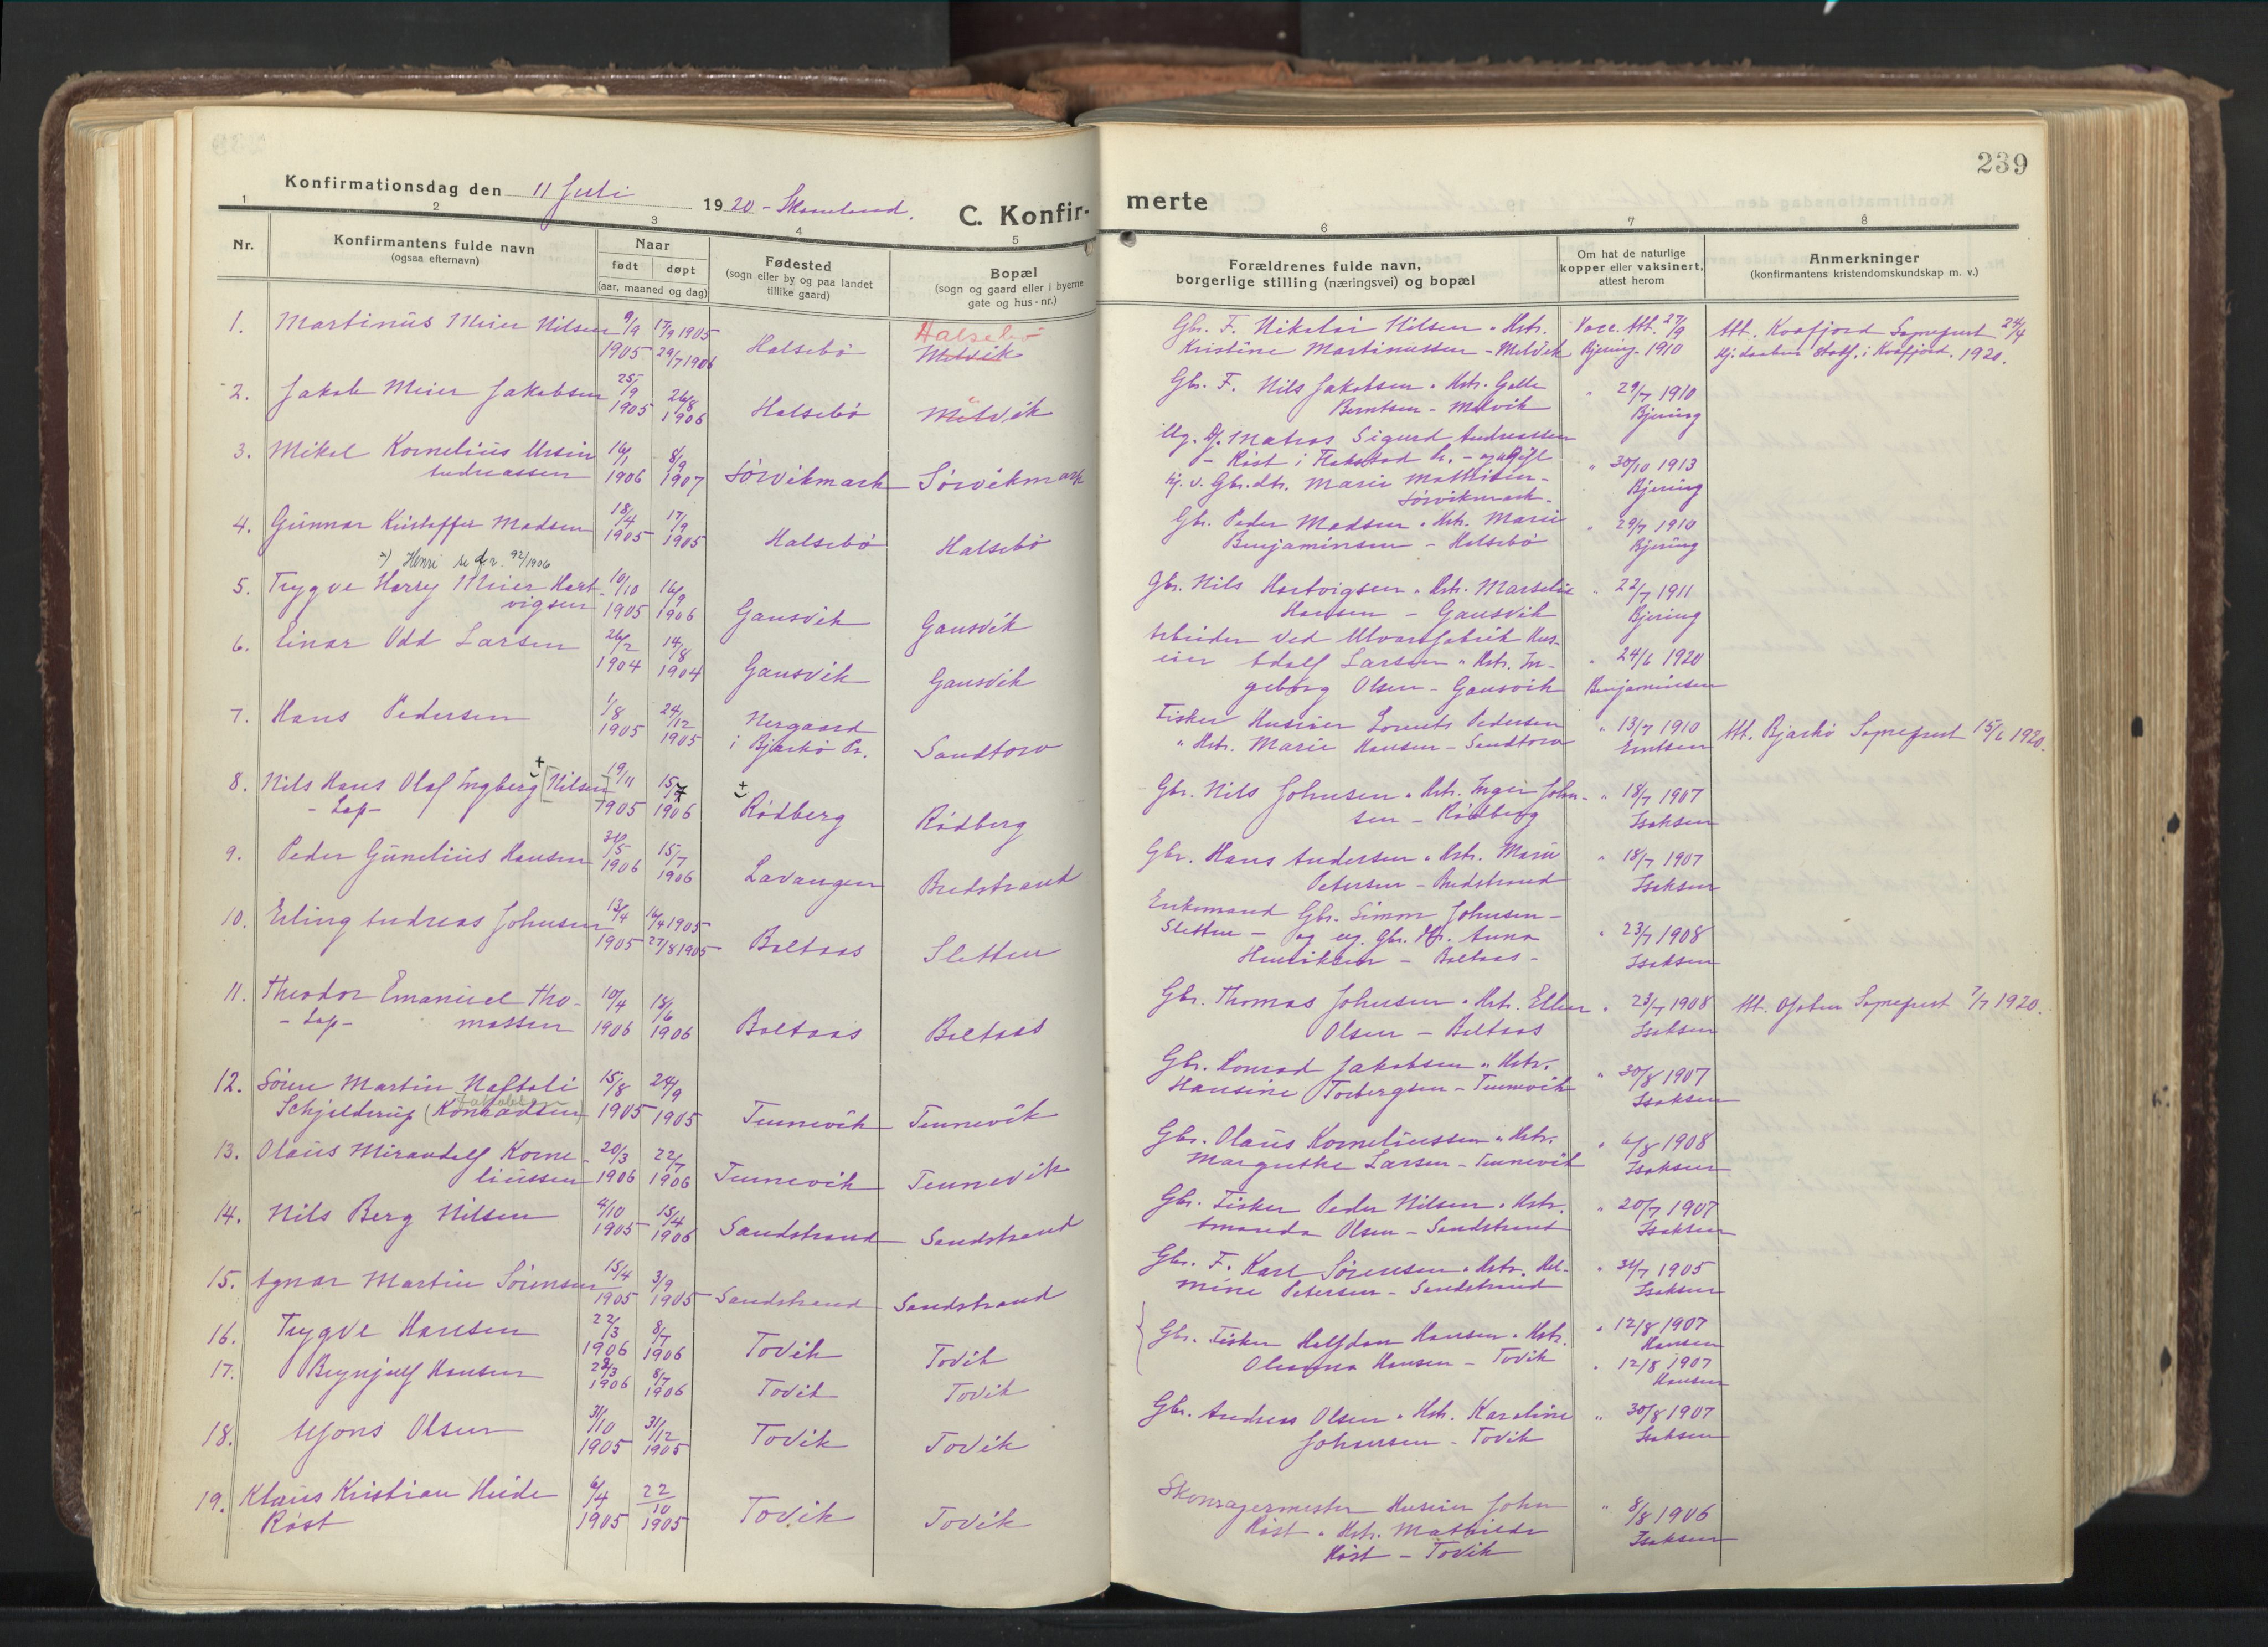 239
Konfirmationsdag den 11 Juli 1920 - Skaanland.
C. Konfirmerte
1 2 3 4 5 6 7 8
Nr.
Konfirmantens fulde navn
(ogsaa efternavn)
Naar
født døpt
(aar, maaned og dag)
Fødested
(sogn eller by og paa landet
tillike gaard)
Bopæl
(sogn og gaard eller i byerne
gate og hus-nr.)
Forældrenes fulde navn,
borgerlige stilling (næringsvei) og bopæl
Om hat de naturlige
kopper eller vaksinert,
attest herom
Anmerkninger
(konfirmantens kristendomskundskap m. v.)
1. Martinus Meier Nilsen 9/9 1905 17/9 1905 29/7 1906 Halsebø Halsebø Melvik
Gbr. F. Nikolai Nilsen . Hstr.
Kristine Martinussen - Melvik
Vacc. Att. 27/9
Bjering - 1910
Att. Kvæfjord Sogneprest 24/4
1920.
2. Jakob Meier Jakobsen 25/9 1905 26/8 1906 Halsebø Melvik
Gbr. F. Nils Jakobsen . Hstr.
Berntsen - Melvik
" 29/7 1910
Bjering
3. Mikal Kornelius Ursin
Andreassen 16/1 1906 8/9 1907 Sørvikmark Sørvikmark
Ug. Df. Matros Sigurd Andreassen
Gbr. dtr. Marie Mathisen -
Sørvikmark -
" 30/10 1913
Bjering
4. Gunnar Kristoffer Madsen 18/4 1905 17/9 1905 Halsebø Halsebø
Gbr. Peder Madsen . Hstr. Marie
Benjaminsen - Halsebø
" 29/7 1910
Bjering
x) Henri se f.r. 92/1906
5. Trygve Harry Meier Hart-
vigsen 10/10 1905 16/9 1906 Gausvik Gausvik
Gbr. Nils Hartvigsen . Hstr. Marselie
Hansen - Gausvik
" 22/7 1911
Bjering
6. Einar Odd Larsen 26/2 1904 14/8 1904 Gausvik Gausvik
Arbeider ved Ulvarefabrik Hus-
eier Adolf Larsen " Hstr. In-
geborg Olsen - Gausvik
" 24/6 1920
Benjaminsen
7. Hans Pedersen 1/8 1905 24/12 1905 Nergaard
i Bjarkø Pr. Sandtorv
Fisker Huseier Lorents Pedersen
" Hstr. Marie Hansen - Sandtorv
" 13/7 1910
Att. Bjarkø Sogneprest 15/6 1920.
8. Nils Hans Olaf Ingberg [Nilsen]
- Lap - 19/11 1905 15/7 1906 Rødberg Rødberg
Gbr. Nils Johnsen . Hstr. Inger John-
sen - Rødberg
" 18/7 1907
Isaksen
9. Peder Gunelius Hansen 30/5 1906 15/7 1906 Lavangen Budstrand
Gbr. Hans Andersen . Hstr. Marie
Petersen - Budstrand
" 18/7 1907
Isaksen
10. Erling Andreas Johnsen 13/4 1905 16/4 1905 27/8 1905 Boltaas Sletten
Enkemand Gbr. Simon Johnsen -
Sletten - og ug. Gbr. Df. Anna
Henriksen - Boltaas -
" 23/7 1908
Isaksen
11. Theodor Emanuel Tho-
- Lap - massen 10/4 1906 18/6 1906 Boltaas Boltaas
Gbr. Thomas Johnsen . Hstr. Ellen
Olsen - Boltaas
" 23/7 1908
Isaksen
Att. Ofoten Sogneprest 7/7 1920.
12. Søren Martin Naftali
Schjelderup (Konradsen) Jakobsen 15/8 1905 24/9 1905 Tennevik Tennevik
Gbr. Konrad Jakobsen " Hstr.
Hansine Torbergsen - Tennevik
" 30/8 1907
Isaksen
13. Olaus Mirandolf Korne-
liussen 20/3 1906 22/7 1906 Tennevik Tennevik
Gbr. Olaus Korneliussen " Hstr.
Margrethe Larsen - Tennevik
" 6/8 1908
Isaksen
14. Nils Berg Nilsen 4/10 1905 15/4 1906 Sandstrand Sandstrand
Gbr. Fisker Peder Nilsen . Hstr.
Amanda Olsen - Sandstrand
" 20/7 1907
Isaksen
15. Agnar Martin Sørensen 15/4 1905 3/9 1905 Sandstrand Sandstrand
Gbr. F. Karl Sørensen . Hstr. Hel-
mine Petersen - Sandstrand
" 31/7 1905
Isaksen
16. Trygve Hansen 22/3 1906 8/7 1906 Tovik Tovik
Gbr. Fisker Halfdan Hansen . Hstr.
Oleanna Hansen - Tovik
" 12/8 1907
Hansen
17. Brynjulf Hansen 22/3 1906 8/7 1906 Tovik Tovik
" 12/8 1907
Hansen
18. Alfons Olsen 31/10 1905 31/12 1905 Tovik Tovik
Gbr. Andreas Olsen . Hstr. Karoline
Johansen - Tovik
" 30/8 1907
Isaksen
19. Klaus Kristian Heide
Røst 6/4 1905 22/10 1905 Tovik Tovik
Skomagermester Huseier John
Røst . Hstr. Mathilde
Røst - Tovik
" 8/8 1906
Isaksen